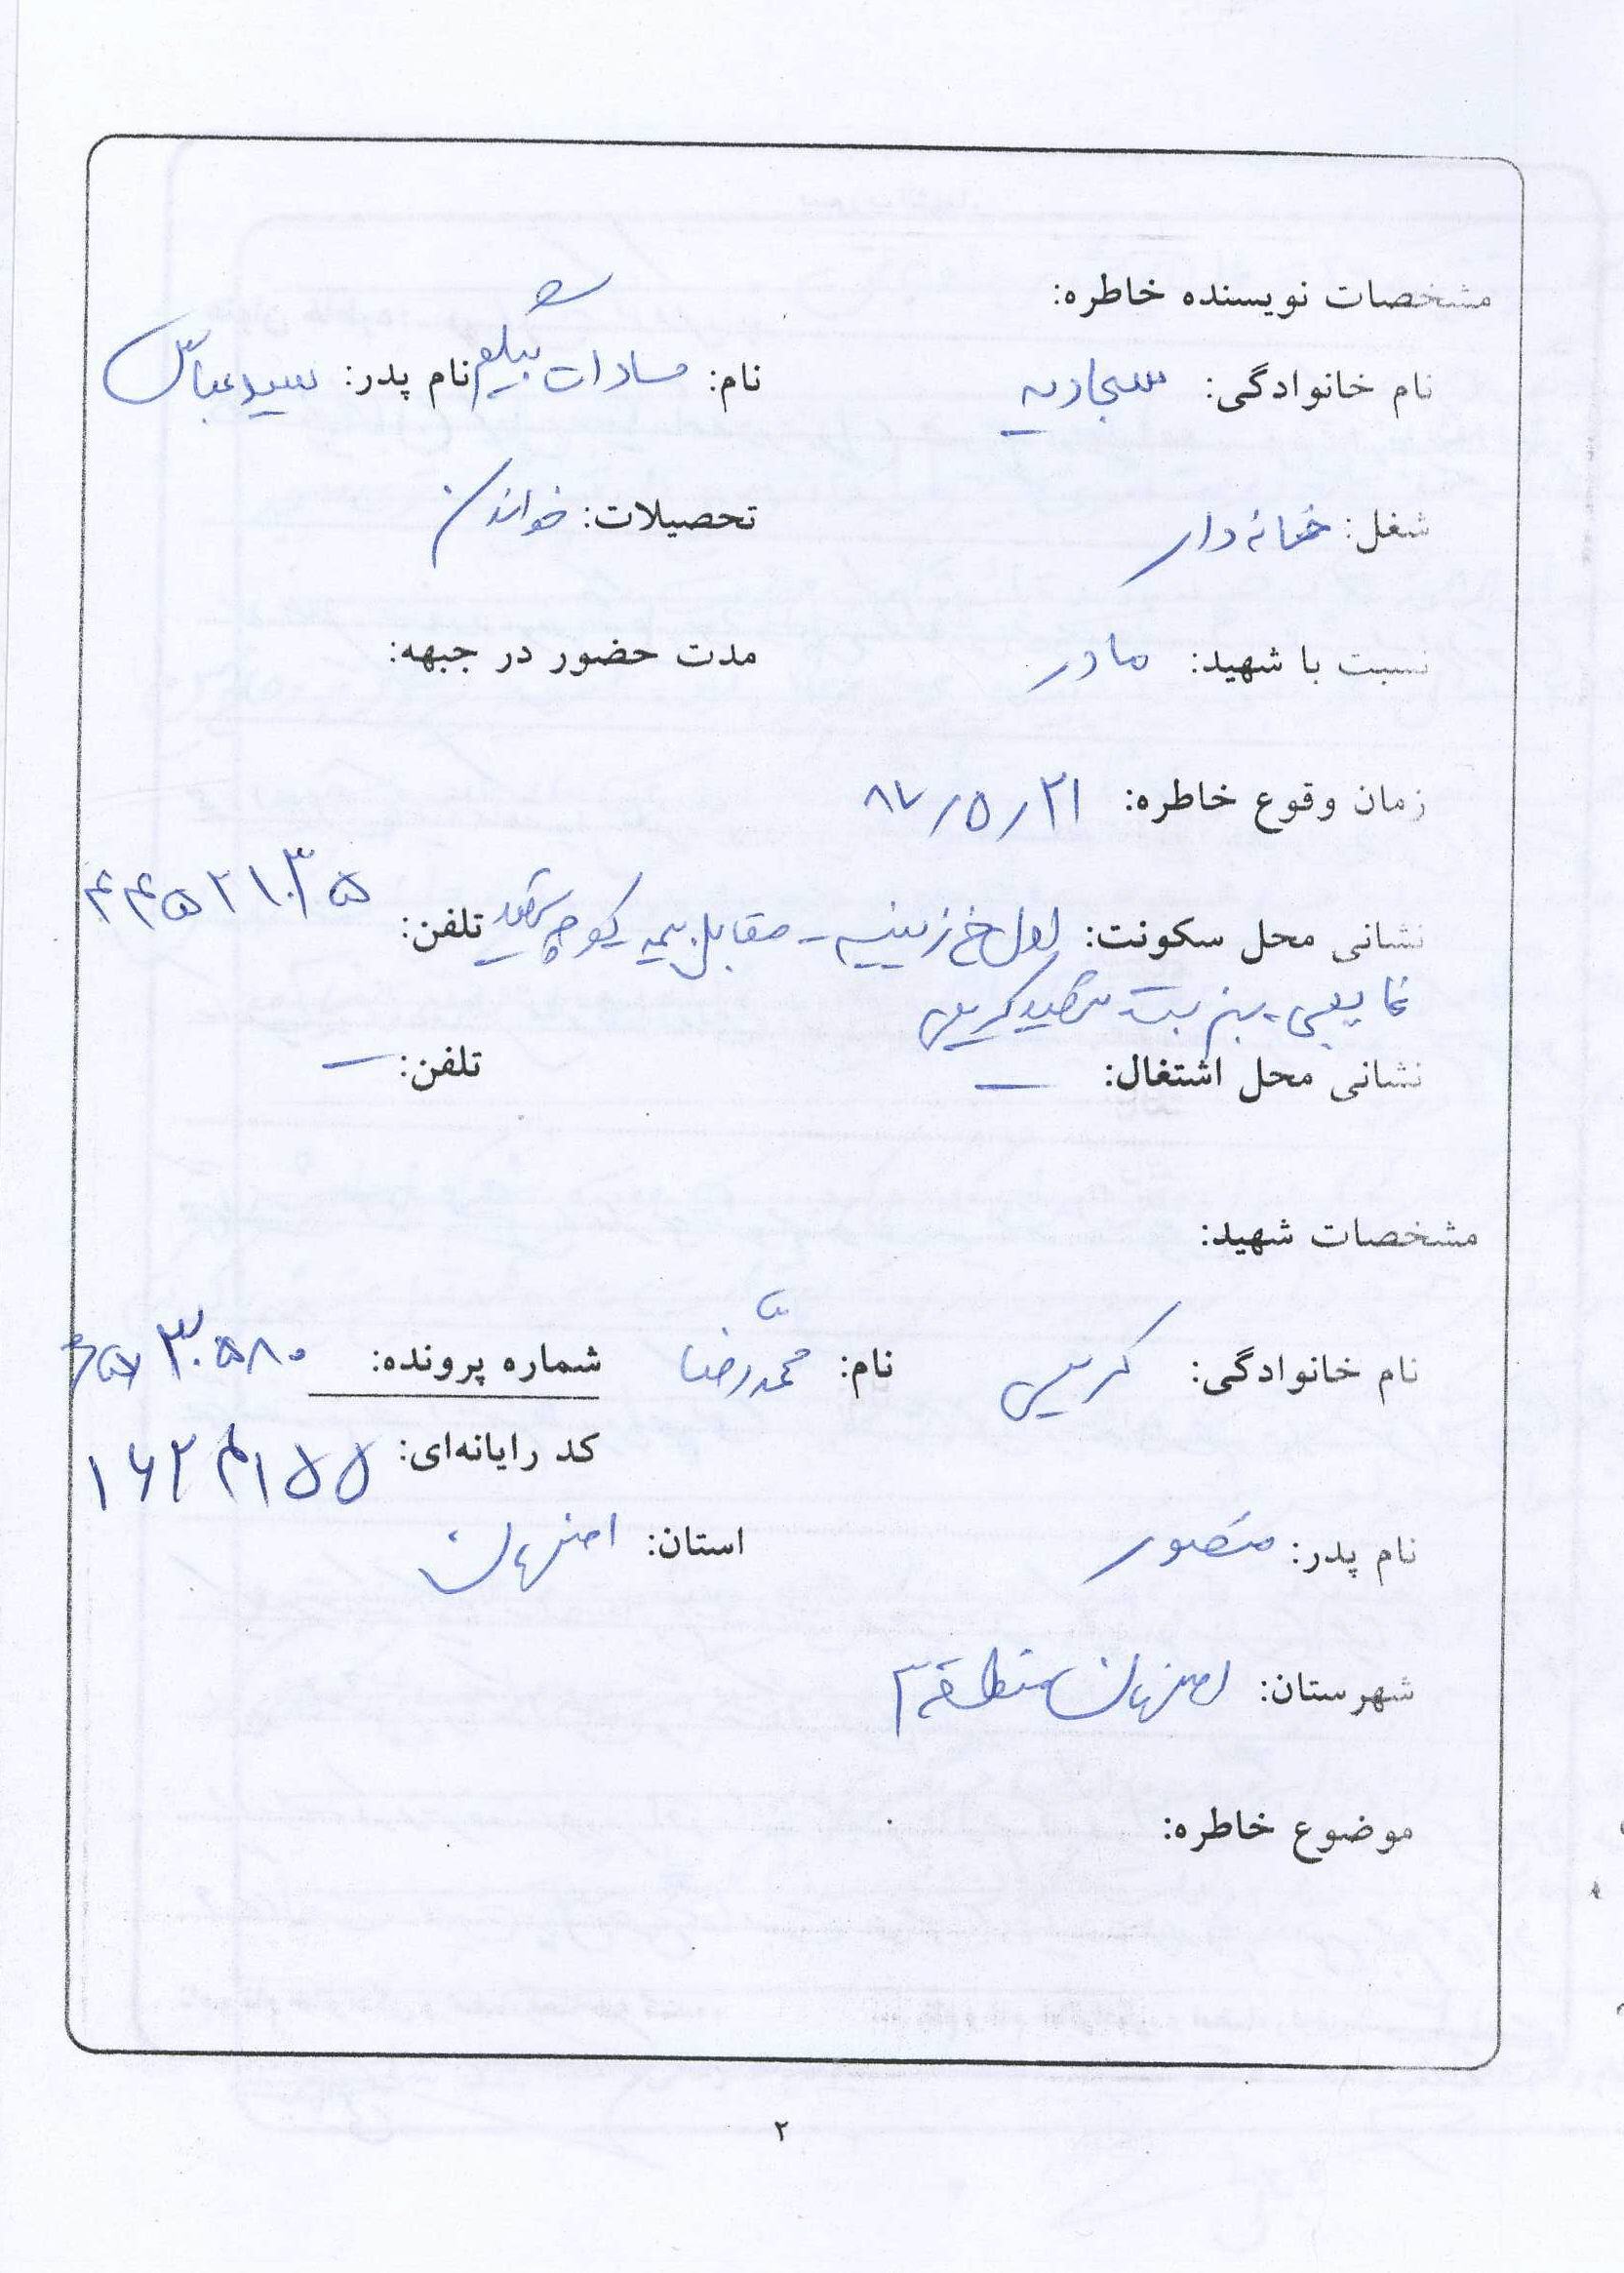 مشخصات نویسنده خاطره:
نام خانوادگی: سجادیه نام: سادات بیگم نام پدر: سید عباس
شغل: خانه‌دار تحصیلات: خواندن
نسبت با شهید: مادر مدت حضور در جبهه:
زمان وقوع خاطره: ۸۷/۵/۲۱
نشانی محل سکونت: اول خ زینبیه - مقابل بیمه کوچه شهید تلفن: ۴۴۵۲۱۰۳۵
بن بست شهید کریمی
نشانی محل اشتغال: — تلفن: —
مشخصات شهید:
نام خانوادگی: کریمی نام: محمدرضا شماره پرونده:
کد رایانه‌ای:
نام پدر: منصور استان: اصفهان
شهرستان: اصفهان منطقه ۳
موضوع خاطره:
۲